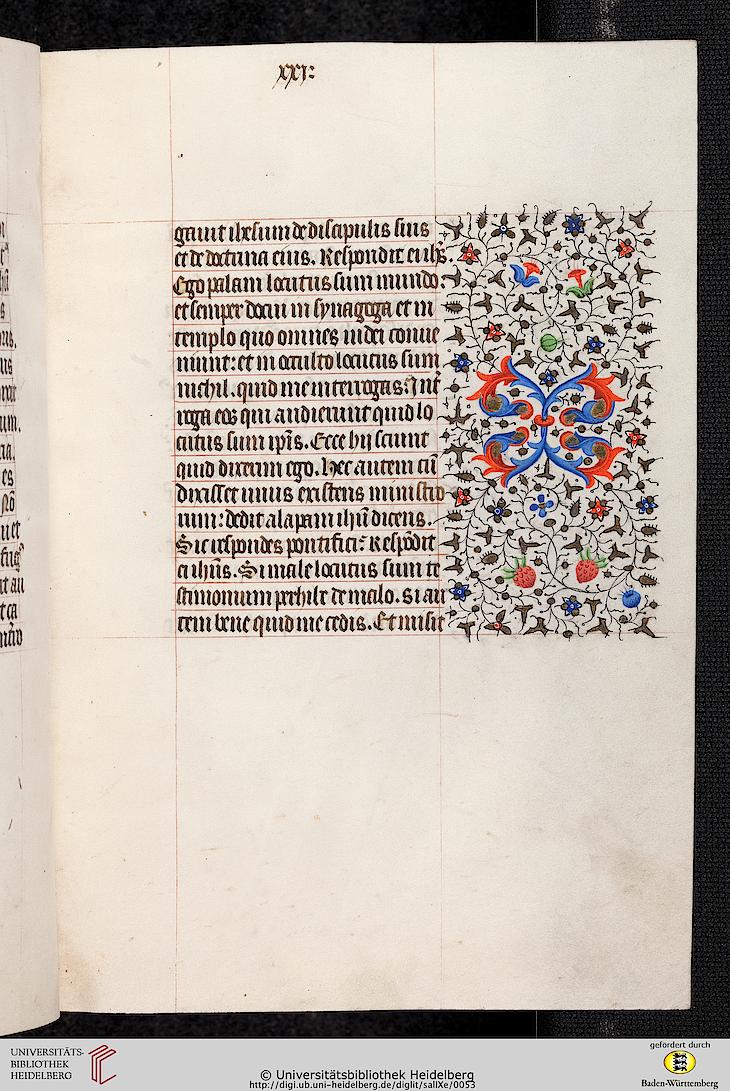 xxi:
gauit ihesum de discipulis suis
et de doctrina eius. Respondit ei ihs̄.
Ego palam locutus sum mundo:
et semper docui in synagoga et in
templo quo omnes iudei conue
niunt: et in occulto locutus sum
nichil. quid me interrogas: Int̄
roga eos qui audierunt quid lo
cutus sum ipīs. Ecce hij sciunt
quid dixerim ego. Hec autem cū
dixisset unus existens ministro
rum: dedit alapam ihū dicens.
Sic respondes pontifici: Respōdit
ei ihūs. Si male locutus sum te
stimonium perhibe de malo. si au
tem bene quid me cedis. Et misit
UNIVERSITÄTS-
BIBLIOTHEK
HEIDELBERG
© Universitätsbibliothek Heidelberg
http://digi.ub.uni-heidelberg.de/diglit/salIXe/0053
gefördert durch
Baden-Württemberg